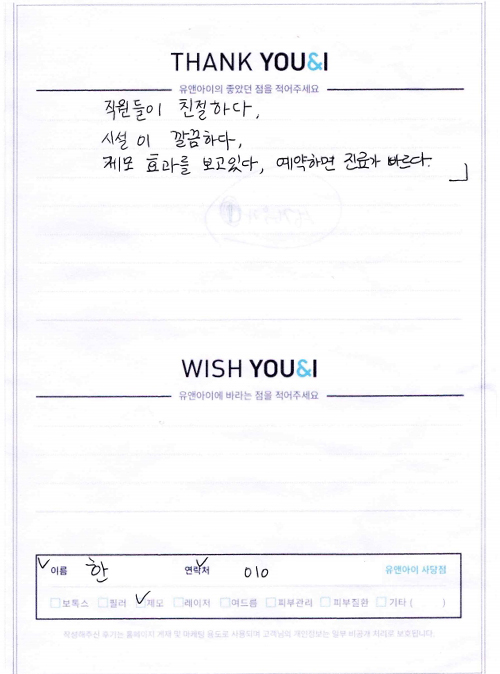 THANK YOU&I
유앤아이의 좋았던 점을 적어주세요
직원들이 친절하다,
시설이 깔끔하다,
제모 효과를 보고있다, 예약하면 진료가 빠르다.
WISH YOU&I
유앤아이에 바라는 점을 적어주세요
이름 한 연락처 010 유앤아이 사당점
보톡스 필러 제모 레이저 여드름 피부관리 피부질환 기타 ( )
작성해주신 후기는 홈페이지 게재 및 마케팅 용도로 사용되며 고객님의 개인정보는 일부 비공개 처리로 보호됩니다.